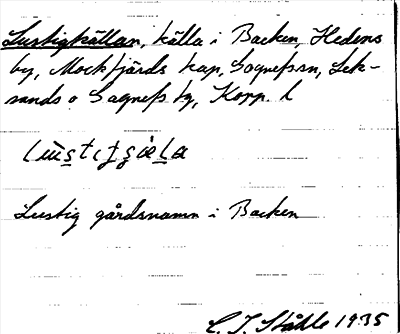 Lustigkällan, källa i Backen, Hedens
by, Mockfjärds kap, Sognefssn, Lek-
sands o Sagnefs tg, Kopp. l

Lustig gårdsnamn i Backen
C. I. Ståhle 1935